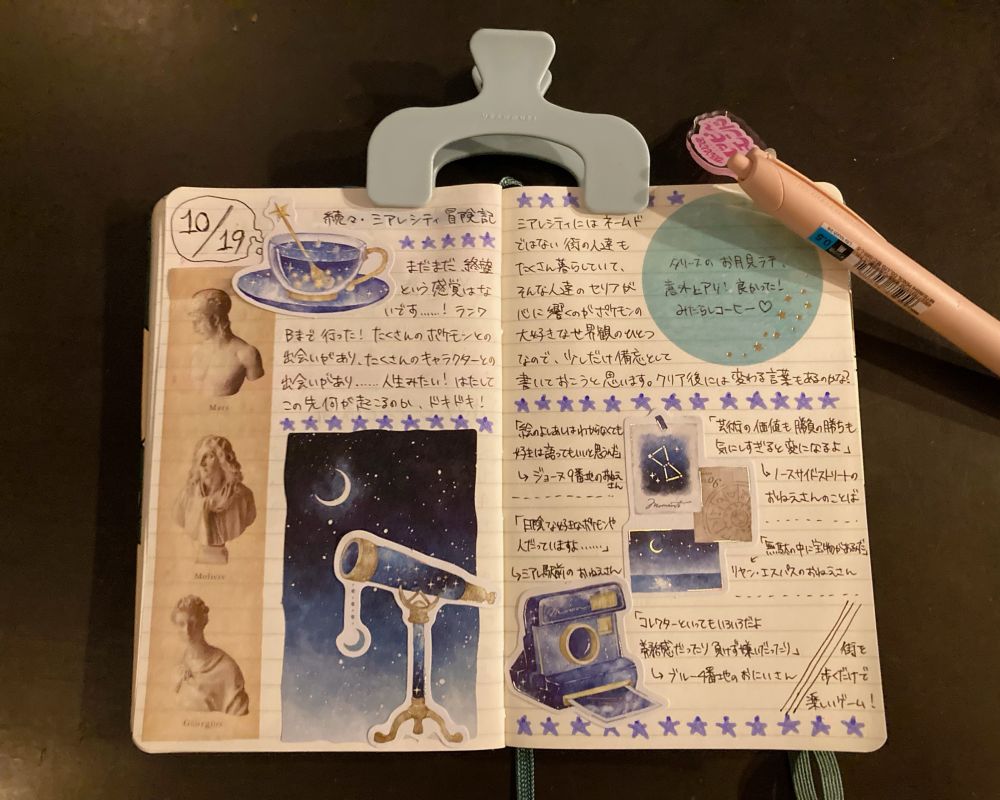 10/19
続々・ミアレシティ冒険記
まだまだ、終盤
という感覚はな
いです……!ランク
Bまで行った!たくさんのポケモンとの
出会いがあり、たくさんのキャラクターとの
出会いがあり……人生みたい!はたして
この先何が起こるのか、ドキドキ!
Mars
Moliere
ミアレシティにはネームド
ではない街の人達も
たくさん暮らしていて、
そんな人達のセリフが
心に響くのがポケモンの
大好きなせ界観のひとつ
なので、少しだけ備忘として
書いておこうと思います。クリア後には変わる言葉もあるのかな?
タリーズのお月見ラテ、
意外とアリ!良かった!
みたらしコーヒー♡
「絵のよしあしはわからなくても
好きは語ってもいいと思うんだ」
↳ジョーヌ9番地のおねえ
さん
「冒険な好きなポケモンや
人だっていますよ……」
↳ミアレ駅前のおねえさん
「芸術の価値も勝負の勝ちも
気にしすぎると変になるよ」
↳ノースサイドストリートの
おねえさんのことば
「無駄の中に宝物があるんだ」
リヤン・エスパスのおねえさん
「コレクターといってもいろいろだよ
だったり負けず嫌いだったり」
↳ブルー4番地のおにいさん
街を
歩くだけで
楽しいゲーム!
Moments
0.5